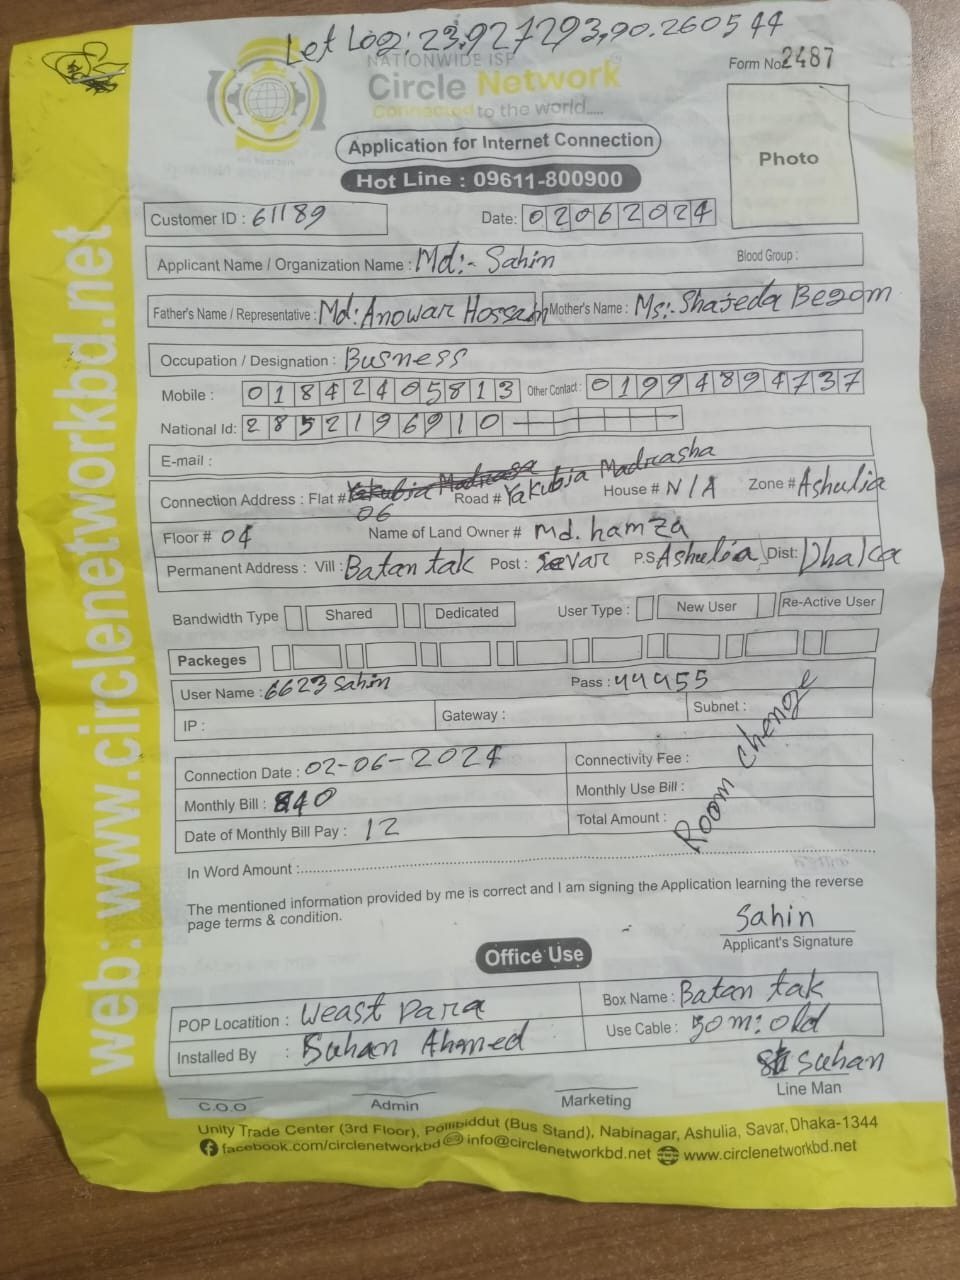 Let Log: 23.927293,90.260544
NATIONWIDE ISP
Circle Network
Connected to the world.....
Form No 2487
Application for Internet Connection
Hot Line : 09611-800900
Photo
Customer ID : 61189 Date: 02062024
Applicant Name / Organization Name : Md:- Sahin Blood Group :
Father's Name / Representative : Md: Anowar Hossain Mother's Name : Ms:- Shajeda Begom
Occupation / Designation : Busness
Mobile : 01842405813 Other Contact : 01994894737
National Id: 2852196910
E-mail :
Connection Address : Flat # Yakubia Madrasa 06 Road # Yakubia Madrasha House # N/A Zone # Ashulia
Floor # 04 Name of Land Owner # Md. hamza
Permanent Address : Vill : Batan tak Post : Savar P.S Ashulia Dist: Dhaka
Bandwidth Type Shared Dedicated User Type : New User Re-Active User
Packeges
User Name : 6623 Sahin Pass : 44455
IP : Gateway : Subnet :
Room Chenge
Connection Date : 02-06-2024 Connectivity Fee :
Monthly Bill : 840 Monthly Use Bill :
Date of Monthly Bill Pay : 12 Total Amount :
In Word Amount :
The mentioned information provided by me is correct and I am signing the Application learning the reverse
page terms & condition.
Sahin
Applicant's Signature
Office Use
POP Locatition : Weast Para Box Name : Batan tak
Installed By : Suhan Ahmed Use Cable : 50 m: old
Suhan
C.O.O Admin Marketing Line Man
Unity Trade Center (3rd Floor), Pollibiddut (Bus Stand), Nabinagar, Ashulia, Savar, Dhaka-1344
facebook.com/circlenetworkbd info@circlenetworkbd.net www.circlenetworkbd.net
web: www.circlenetworkbd.net